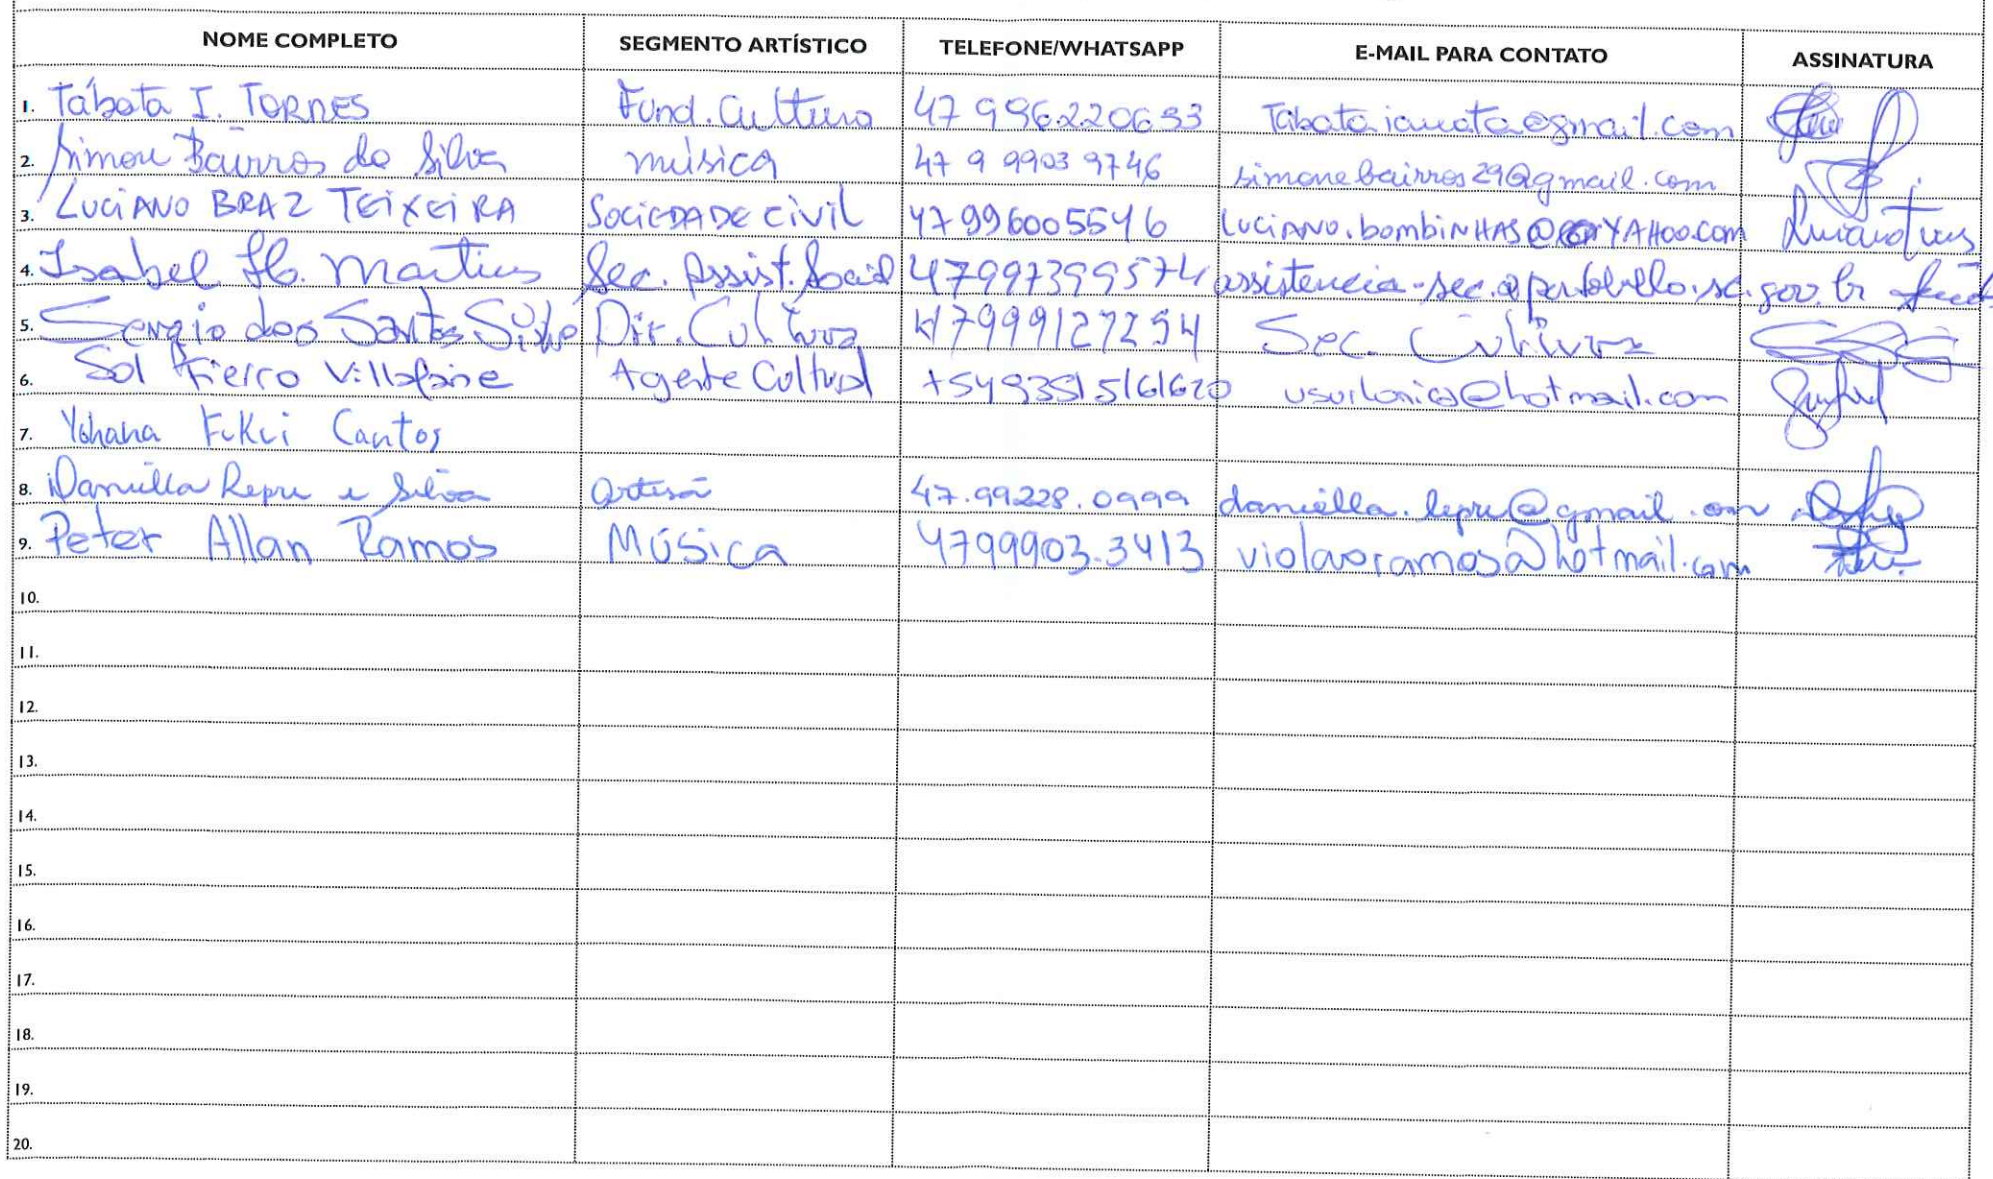 NOME COMPLETO SEGMENTO ARTÍSTICO TELEFONE/WHATSAPP E-MAIL PARA CONTATO ASSINATURA
1. Tábata I. TORNES Fund. Cultura 47 996220693
2. Simone Bairros da Silva música 47 9 9903 9746 simonebairros29@gmail.com
3. LUCIANO BRAZ TEIXEIRA SOCIEDADE CIVIL 47 996005546 LUCIANO.bombiNHAS@YAHOO.COM
4. Isabel Martins Sec. Assist. Social 47997399574 assistencia-sec.@portobello.sc.gov.br
5. Sergio dos Santos Silva Dir. Cultura 47999127254 Sec. Cultura
6. Sol Fierro Villafañe Agente Cultural
7. Yohana Fukui Cantos
8. Daniella Lepre e Silva artesã 47.99228.0999
9. Peter Allan Ramos Música 4799903.3413 violaoramos@hotmail.com
10.
11.
12.
13.
14.
15.
16.
17.
18.
19.
20.